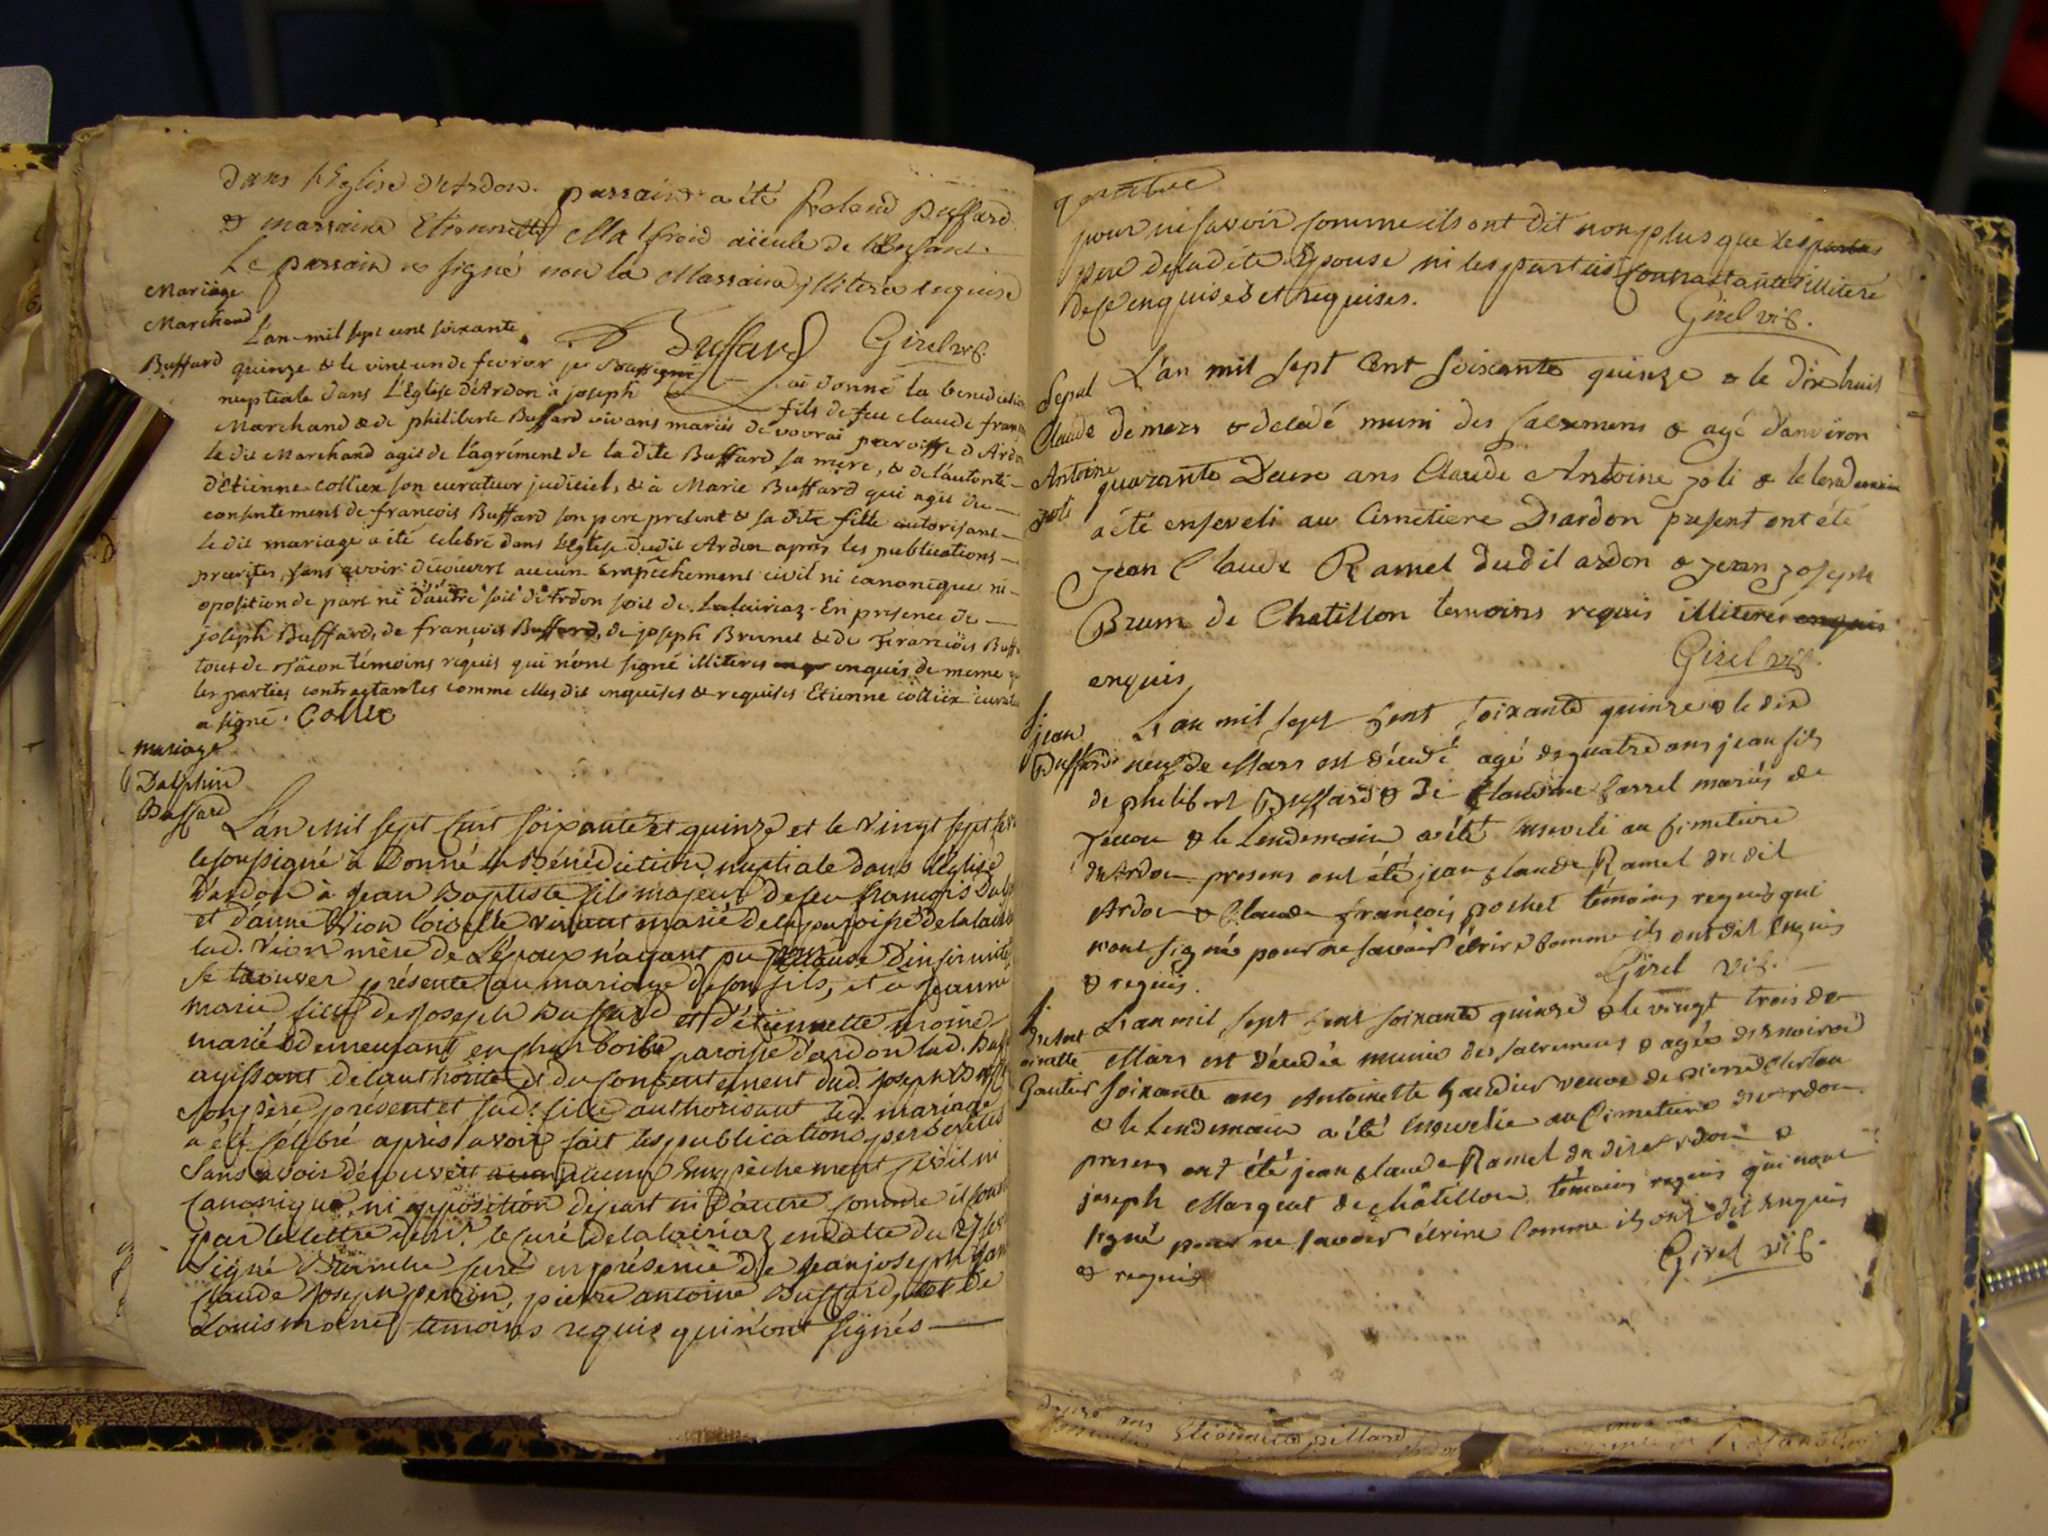 dans l'Eglise d'Ardon. parrain a été Roland Buffard
& marraine Etiennette aïeule de l'Enfant.
Le parrain signé non la Marraine illiterée enquise
Mariage
Marchand
Buffard
Buffard Girel vic.
L'an mil sept cent soixante
quinze & le vint un de fevrier je soussigné ai donné la benediction
nuptiale dans L'Eglise d'Ardon à joseph fils de feu claude
Marchand & de philiberte Buffard vivans mariés de vovrai paroisse d'Ardon
le dit Marchand agit de l'agrément de la dite Buffard sa mere, & de l'autorité
d'Etienne collier son curateur judiciel, & à Marie Buffard qui agit du
consentement de francois Buffard son pere present & sa dite fille autorisant
le dit mariage a été celebré dans l'Eglise dudit Ardon après les publications
prescrites, sans avoir découvert aucun empêchement civil ni canonique ni
oposition de part ni d'autre soit d'Ardon soit de Lalairiaz. En presence de
joseph Buffard, de françois Buffard, de joseph Brunet & de François
tous de témoins requis qui n'ont signé illiteres enquis de meme
les parties contractantes comme elles dit enquises & requises Etienne collier
a signé. Collie
mariage
Dalphin
Buffard
L'an Mil sept cent soixante et quinze et le vingt sept
le soussigné a Donné la Bénédiction nuptiale dans l'Eglise
d'ardon à Jean Baptiste fils majeur de feu francois
et d'anne Vion vivant marié de la paroisse de
lad. Vion mère de L'époux n'ayant pu pour cause d'infirmité
se trouver présente au mariage de son fils, et à Jeanne
marie fille de Joseph Buffard et d'étiennette
mariés demeurant en paroisse d'ardon lad.
agissant de l'authorité et du consentement dud. joseph
son père présent et sad. fille authorisant led. mariage
a été célébré après avoir fait les publications
sans avoir découvert aucun Empêchement Civil ni
Canonique, ni opposition de part ni d'autre comme il
par la lettre de mr. le curé de lalairiaz en datte du 27
signé curé en présence de Jean joseph
Claude Joseph perrin, pierre antoine Buffard, et de
Louis témoins requis qui n'ont signés
pour ne savoir comme ils ont dit non plus que les
pere de ladite Epouse ni les parties contractantes illiteré
de ce enquises et requises.
Girel vic.
Sepul
Claude
Antoine
joli
L'an mil sept Cent soixante quinze & le dix huit
de mars & decedé muni des sacremens & agé d'anviron
quarante Deux ans Claude Antoine joli & le lendemain
a été enseveli au Cimetiere D'ardon present ont été
jean Claude Ramel dudit ardon & jean joseph
Brun de Chatillon temoins requis illiteres enquis
enquis
Girel vic.
jean
Buffard
L'an mil sept Cent soixante quinze & le dix
neuf de Mars est décédé agé de quatre ans jean fils
de philibert Buffard & de Claudine mariés de
& le Lendemain a été Enseveli au Cimetiere
d'Ardon presens ont été jean Claude Ramel du dit
Ardon & Claude françois pochet témoins requis qui
n'ont signé pour ne savoir écrire Comme ils ont dit Enquis
& requis.
Girel vic.
Antoinette
Gautier
L'an mil sept Cent soixante quinze & le vingt trois de
Mars est décédée munie des sacremens & agée
soixante ans Antoinette veuve de pierre
& le Lendemain a été Ensevelie au Cimetiere d'Ardon
presens ont été jean Claude Ramel du dit Ardon &
joseph Marquet de châtillon témoins requis qui n'ont
signé pour ne savoir écrire Comme ils ont dit Enquis
& requis
Girel vic.